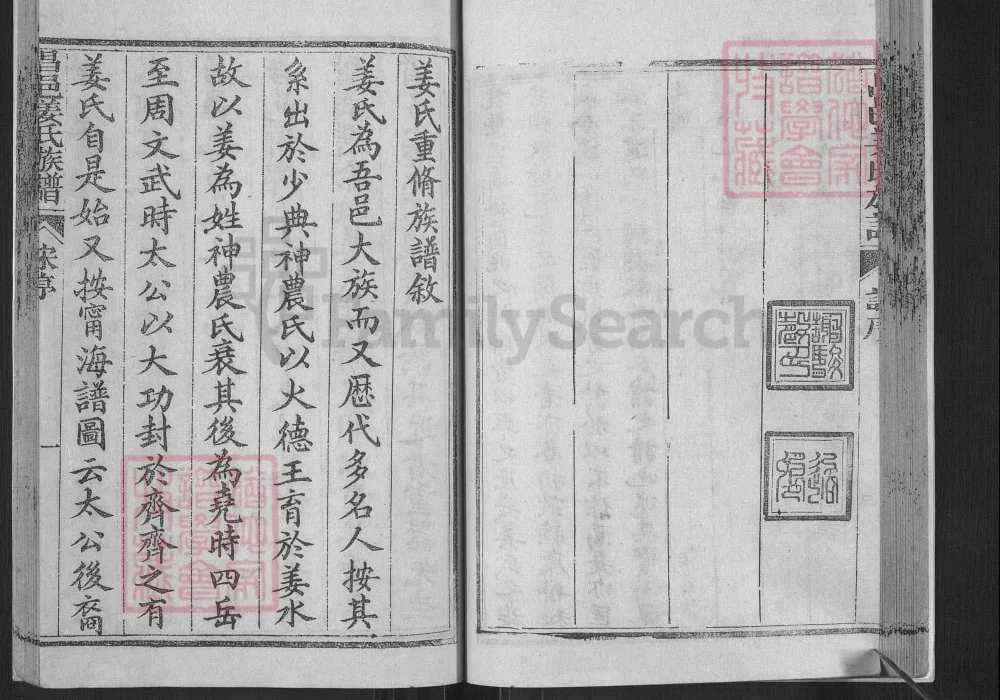 姜氏重脩族譜敘
姜氏為吾邑大族而又歷代多名人按其
系出於少典神農氏以火德王育於姜水
故以姜為姓神農氏衰其後為堯時四岳
至周文武時太公以大功封於齊齊之有
姜氏自是始又按甯海譜圖云太公後裔
昌邑姜氏族譜
一
FamilySearch